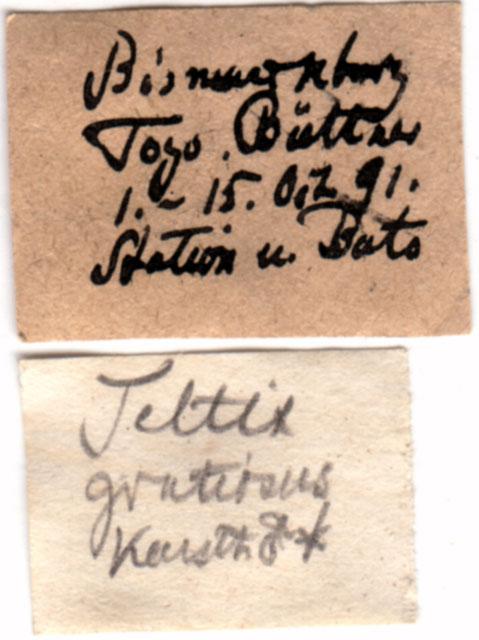 Bismarckburg
Togo. Büttner
1. – 15. Okt. 91.
Station u. Bato
Teltix
gratiosus
Karsch